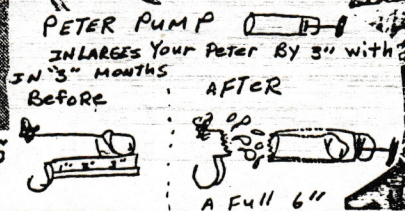 PETER PUMP
INLARGES Your Peter By 3" with
IN "3" MONTHS
Before
AFTER
1" 2" 3"
A Full 6"